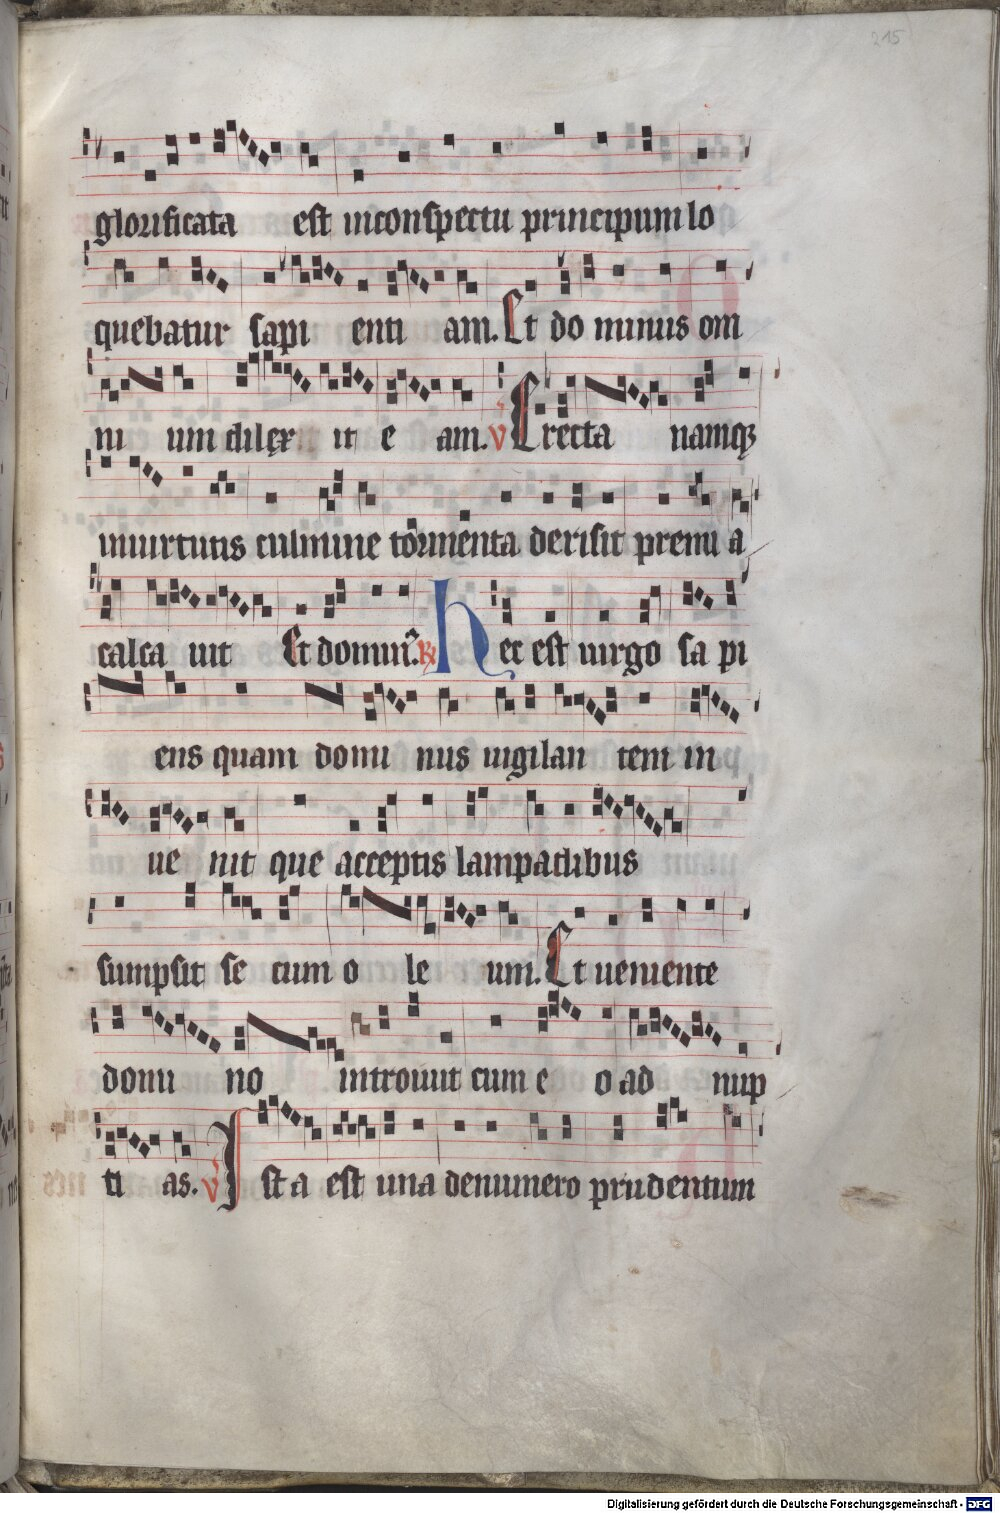 215
glorificata est inconspectu principum lo
quebatur sapi enti am. Et do minus om
ni um dilex it e am. V Erecta namqꝫ
inuirtutis culmine tormenta derisit premi a
calca uit Et domin᷒. ℟ Hec est uirgo sa pi
ens quam domi nus uigilan tem in
ue nit que acceptis lampadibus
sumpsit se cum o le um. Et ueniente
domi no introiuit cum e o ad nup
ti as. V Ista est una denumero prudentum
Digitalisierung gefördert durch die Deutsche Forschungsgemeinschaft - DFG